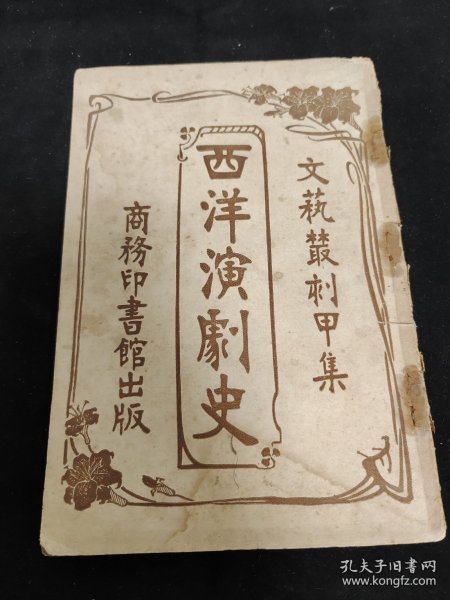 文藝叢刻甲集
西洋演劇史
商務印書館出版
孔夫子旧书网
www.kongfz.com